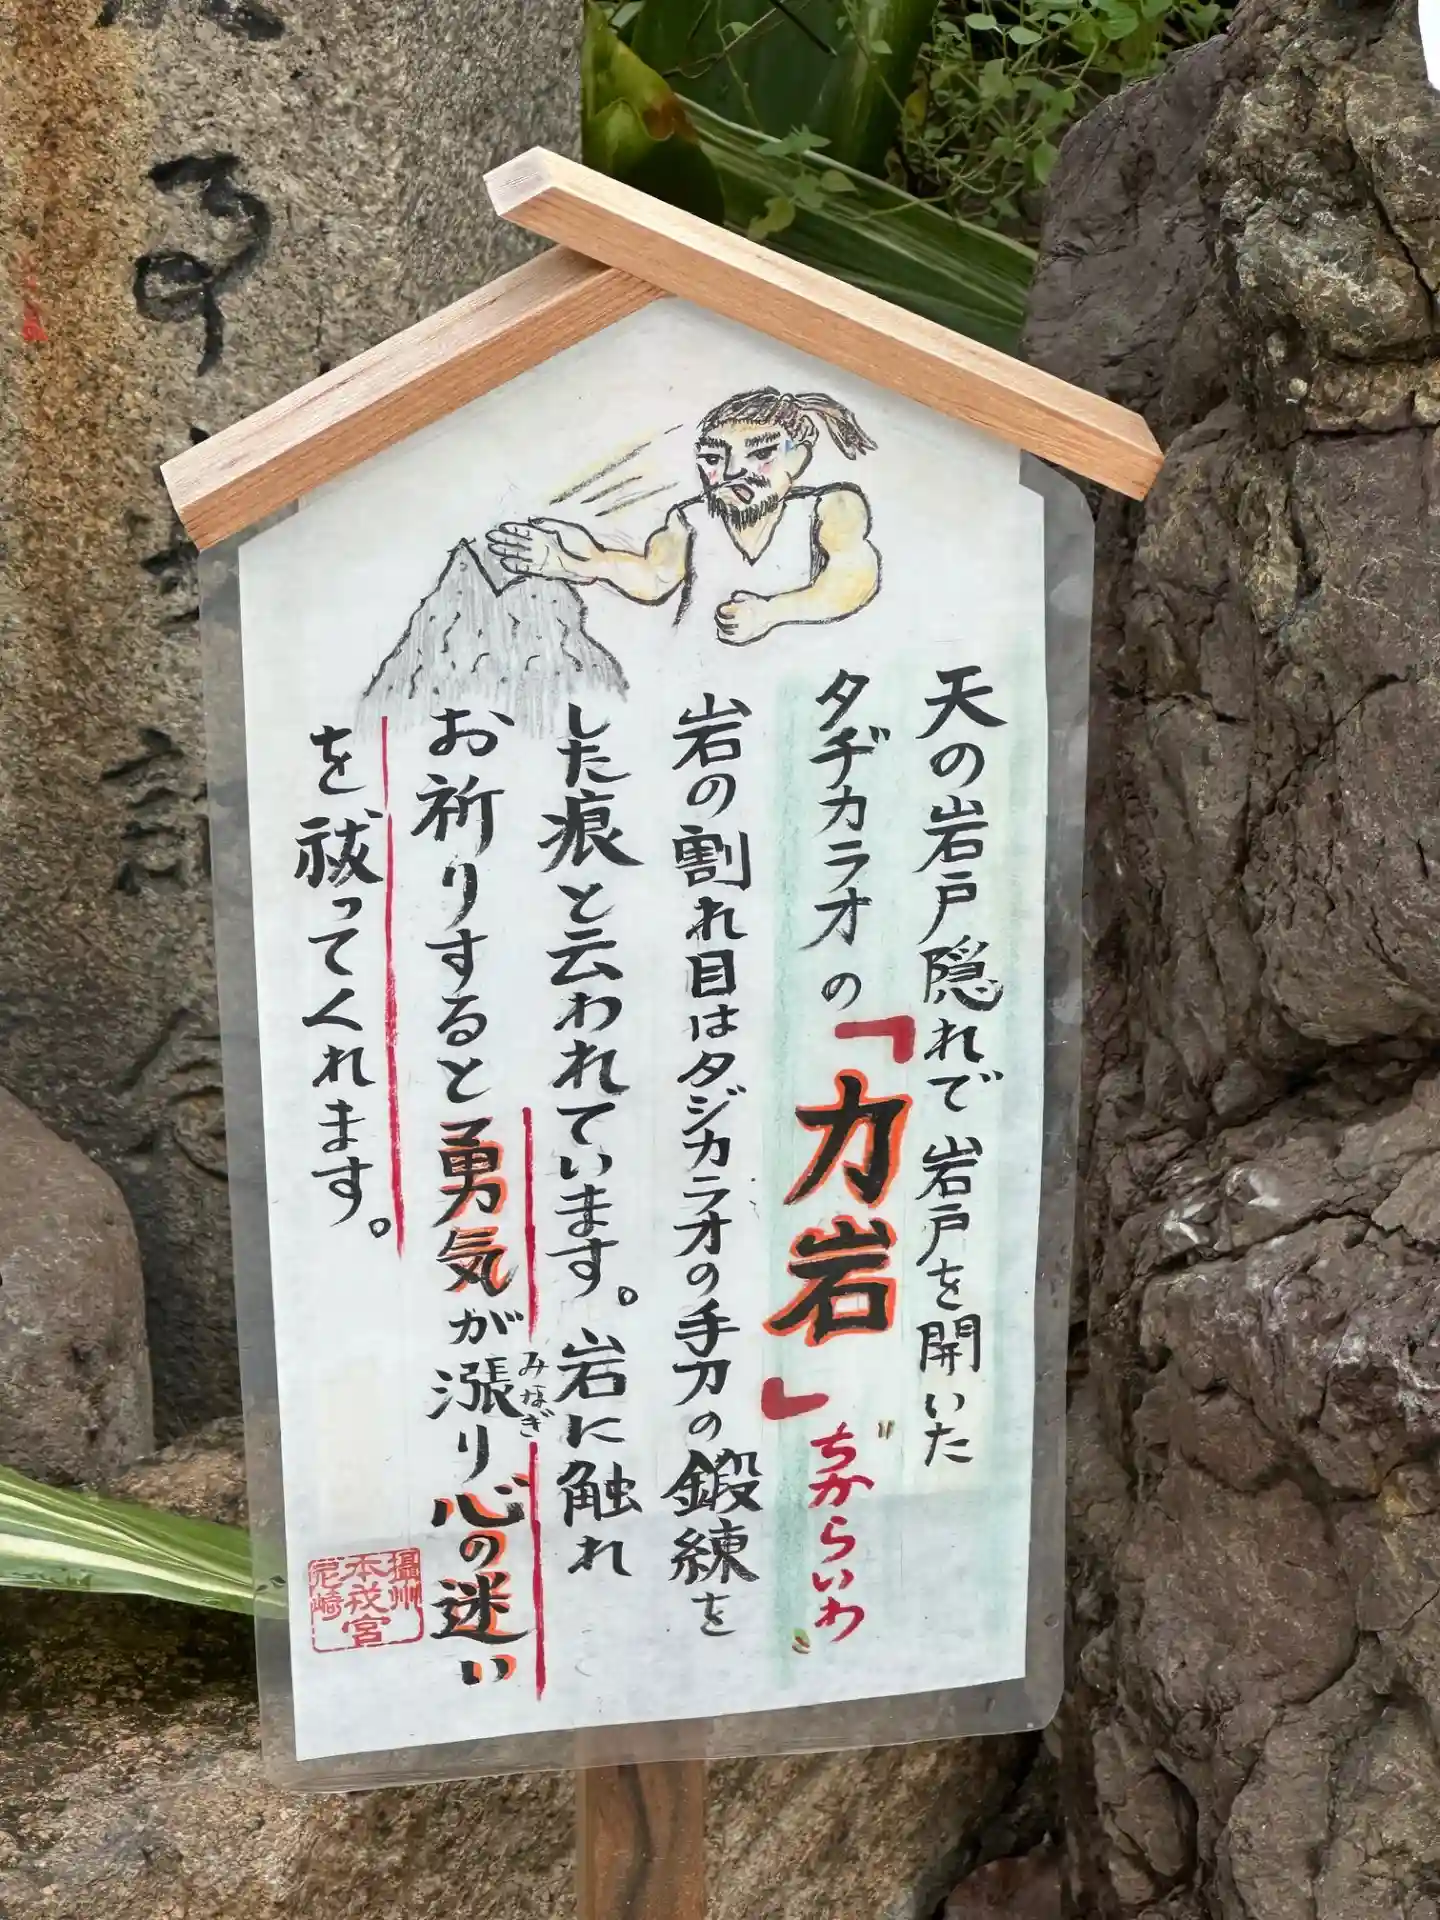 天の岩戸隠れで岩戸を開いた
タヂカラオの「力岩」"ちからいわ"
岩の割れ目はタジカラオの手刀の鍛練を
した痕と云われています。岩に触れ
お祈りすると勇気が漲り心の迷い
みなぎ
を祓ってくれます。
摂州
本戎宮
尼崎